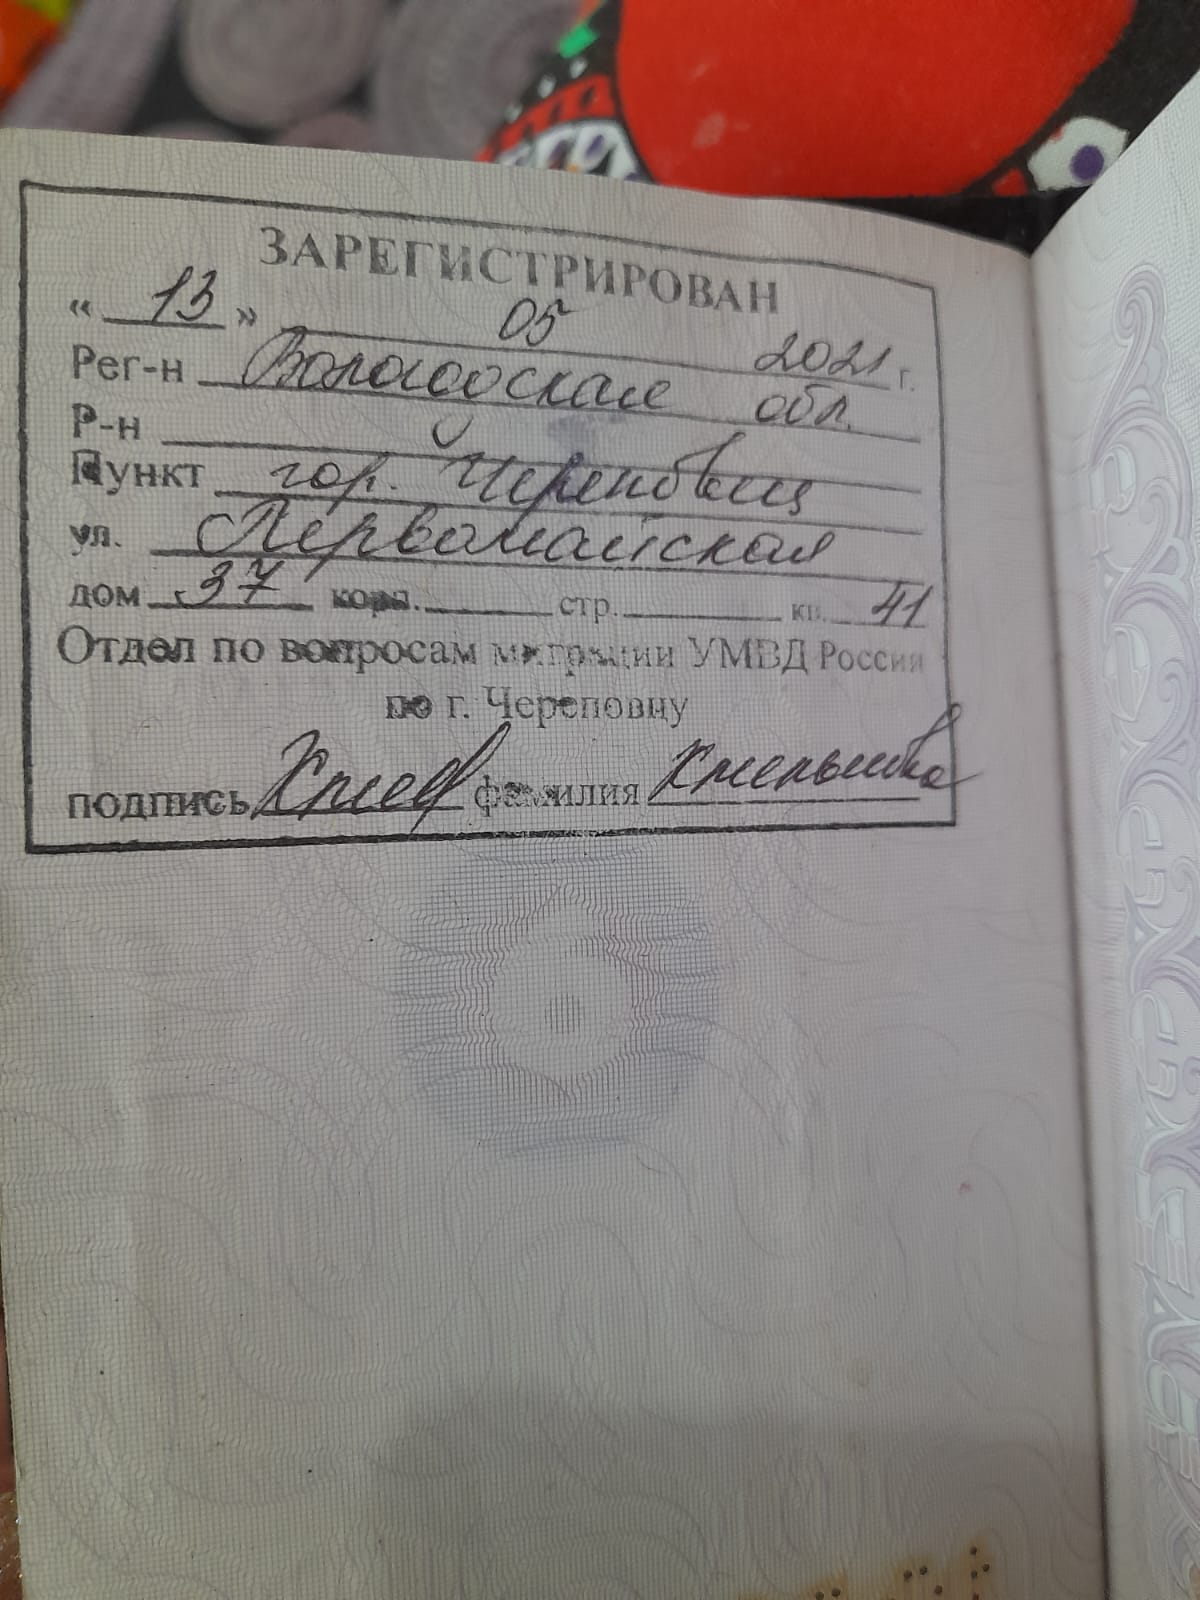 ЗАРЕГИСТРИРОВАН
« 13 » 05 2021 г.
Рег-н Вологодская обл.
Р-н
Пункт гор. Череповец
ул. Первомайская
дом 37 корп. стр. кв. 41
Отдел по вопросам миграции УМВД России
по г. Череповцу
подпись фамилия